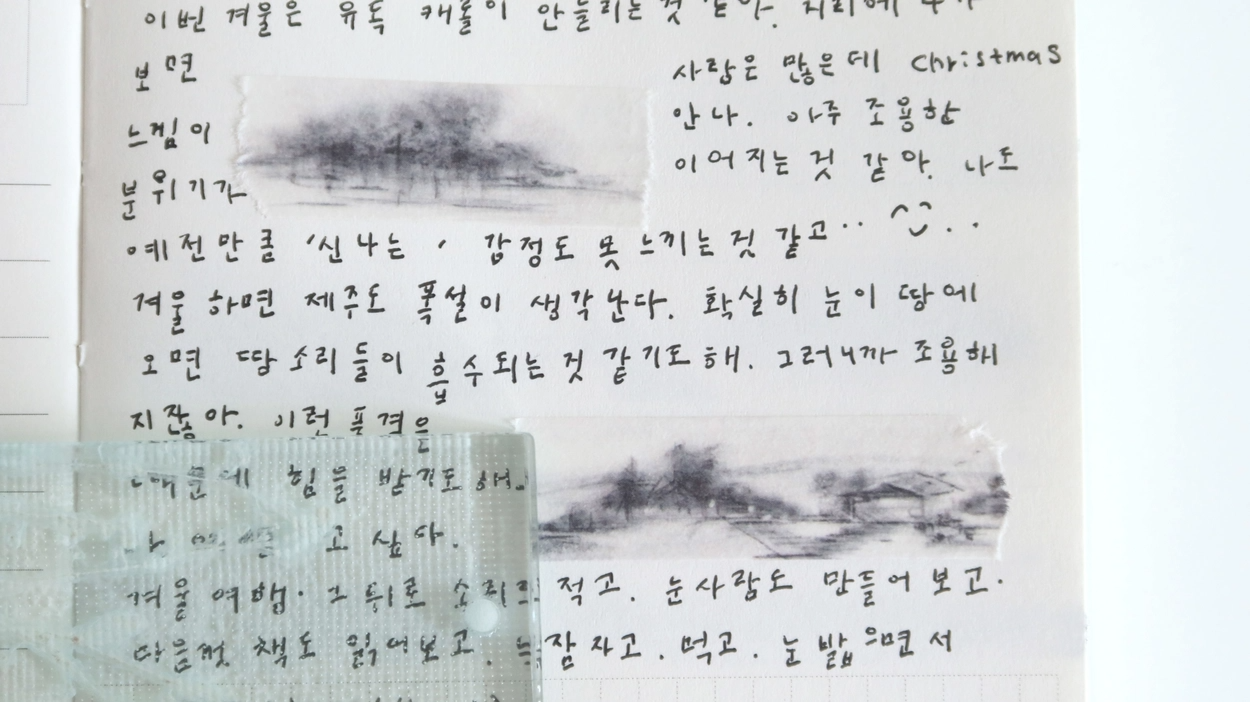 이번 겨울은 유독 캐롤이 안들리는것 같아. 거리에 나가
보면 사람은 많은데 Christmas
느낌이 안 나. 아주 조용한
분위기가 이어지는 것 같아. 나도
예전만큼 '신나는' 감정도 못느끼는것 같고.. ^^..
겨울 하면 제주도 폭설이 생각난다. 확실히 눈이 땅에
오면 땅소리들이 흡수되는 것 같기도 해. 그러니까 조용해
지잖아. 이런 풍경을
때문에 힘을 받기도 해.
고 싶다.
겨울 여행. 그 뒤로 소리를 적고. 눈사람도 만들어 보고.
마음껏 책도 읽어보고. 늦잠 자고. 먹고. 눈 밟으면서